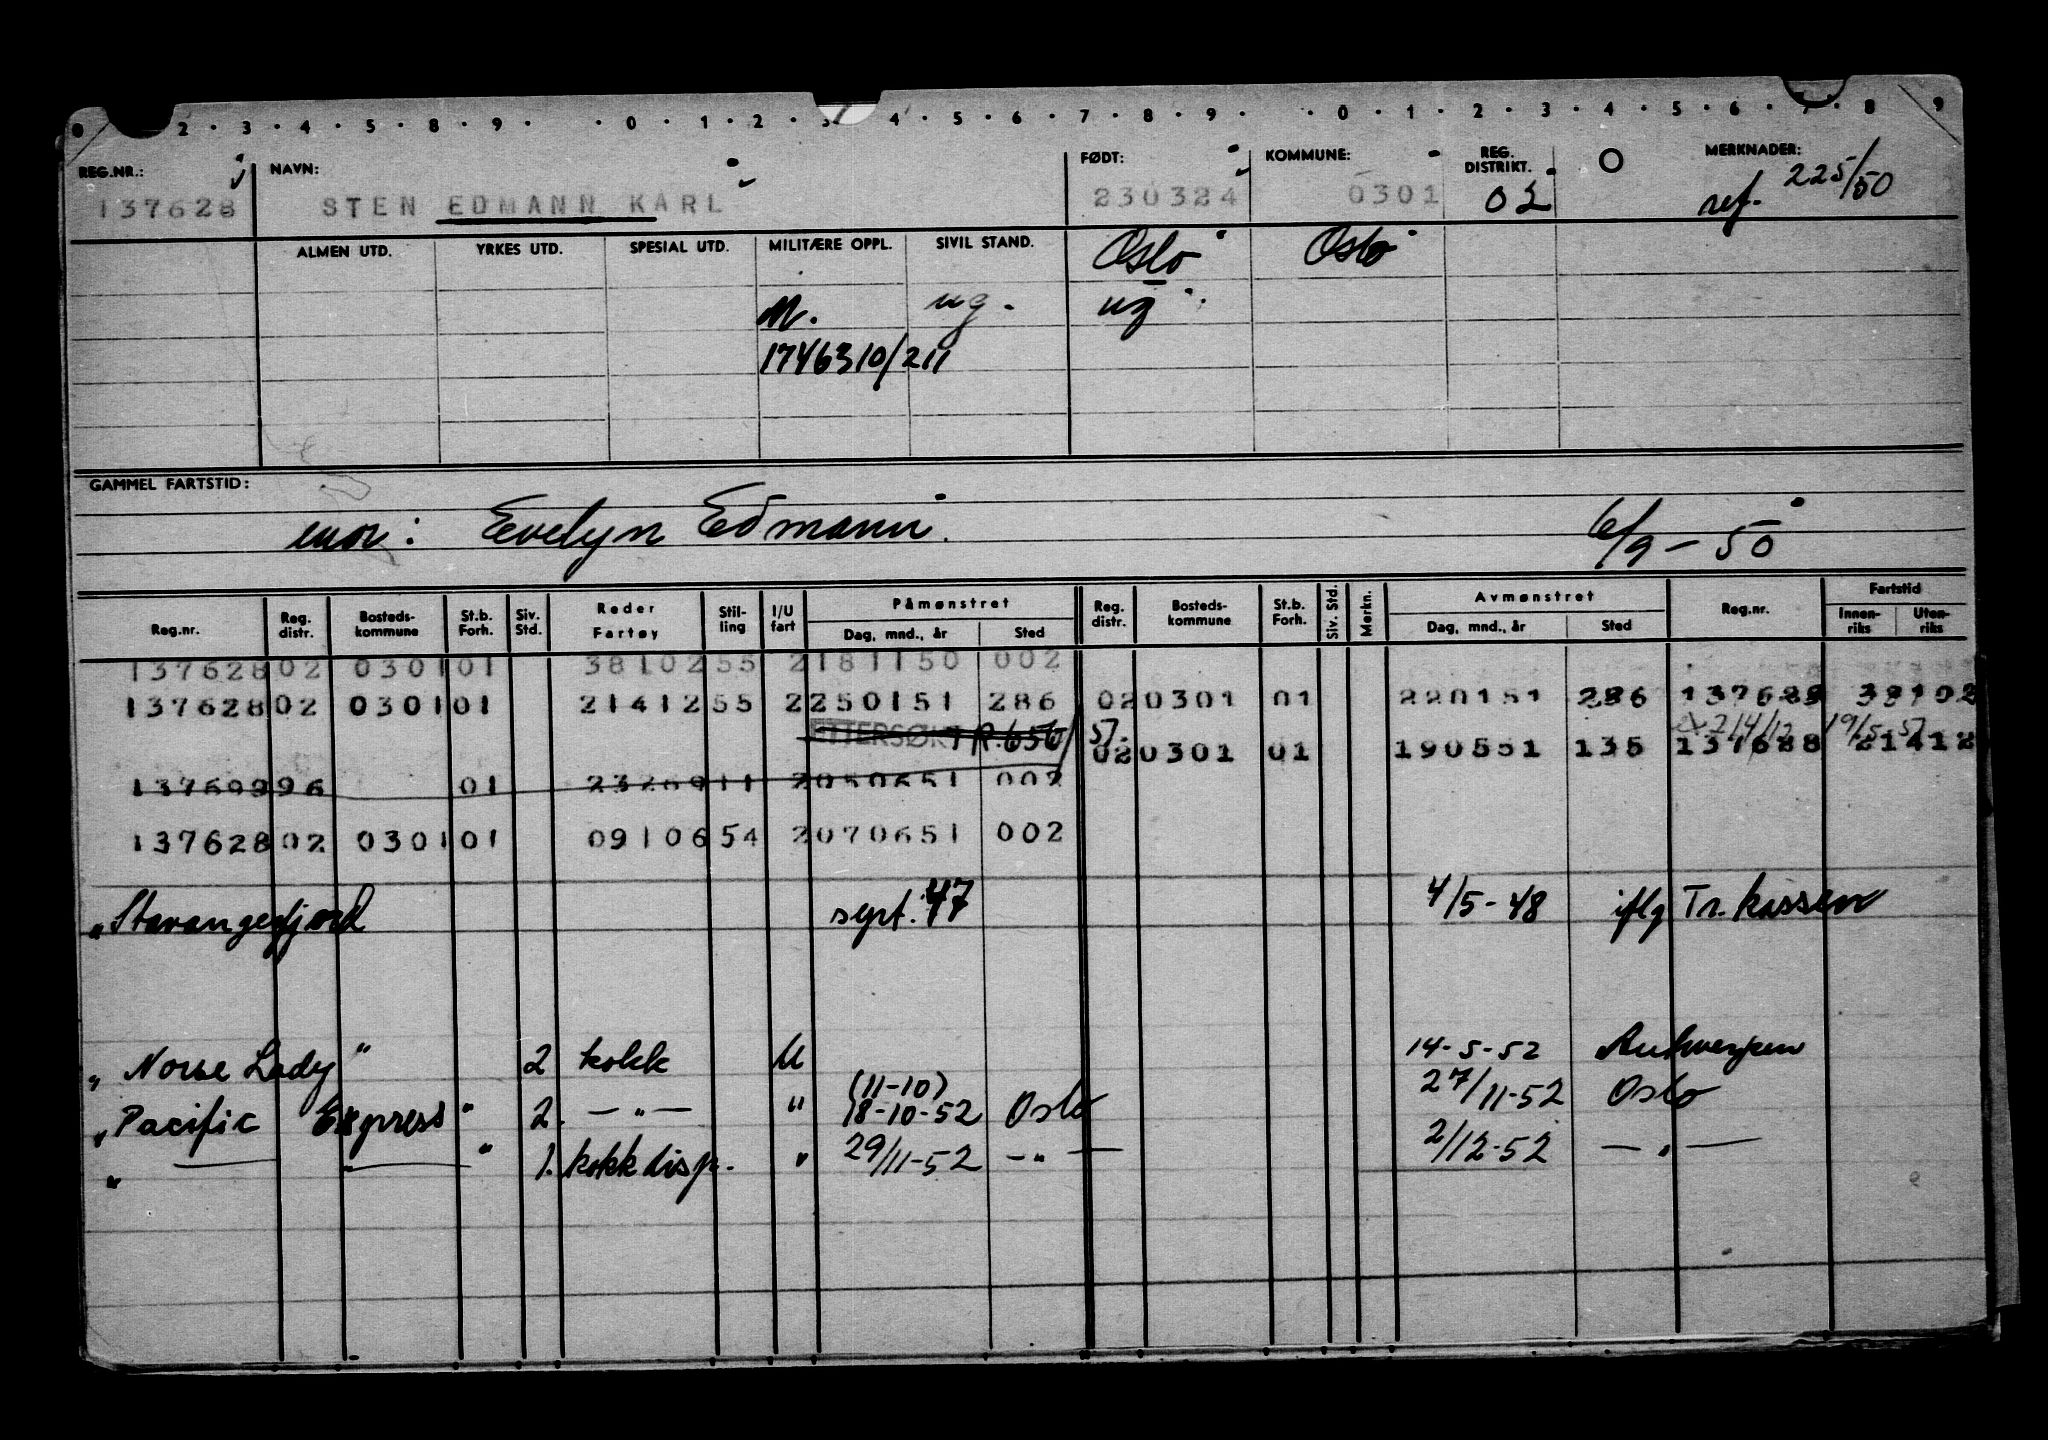 0 2 3 4 5 8 9 0 1 2 3 4 5 6 7 8 9 0 1 2 3 4 5 6 7 8 9
REG.NR.: NAVN: FØDT: KOMMUNE: REG. DISTRIKT. O MERKNADER:
137628 STEN EDMANN KARL 230324 0301 02 ref. 225/50
ALMEN UTD. YRKES UTD. SPESIAL UTD. MILITÆRE OPPL. SIVIL STAND. Oslo Oslo
M. ug. ug
1746310/211
GAMMEL FARTSTID:
mor: Evelyn Edmann. 6/9-50
Reg.nr. Reg. distr. Bosteds- kommune St.b. Forh. Siv. Std. Reder Fartøy Stil- ling I/U fart Påmønstret Dag, mnd., år Sted Reg. distr. Bosteds- kommune St.b. Forh. Siv. Std. Merkn. Avmønstret Dag, mnd., år Sted Reg.nr. Fartstid Innen- riks Uten- riks
137628 02 0301 01 38102 55 2 181150 002
137628 02 0301 01 21412 55 2 250151 286 02 0301 01 220151 286 137628 38102
ETTERSØKT R.656/51. 19/5-51
02 0301 01 190551 135 137628 21412
137699 96 01 23269 11 2 050651 002
137628 02 0301 01 09106 54 2 070651 002
"Stavangerfjord sept. 47 4/5-48 iflg Tr. kassen
"Norse Lady" 2 kokk U 14-5-52 Antwerpen
(11-10)
"Pacific Express" 2. —"— " 18-10-52 Oslo 27/11-52 Oslo
" — " — " 1. kokk disp. " 29/11-52 —"— 2/12-52 —"—